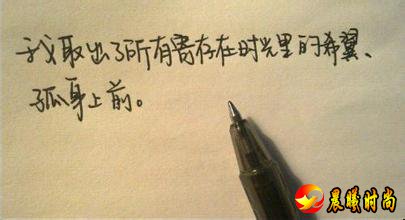 我取出了所有寄存在时光里的希翼、
孤身上前。
晨曦时尚